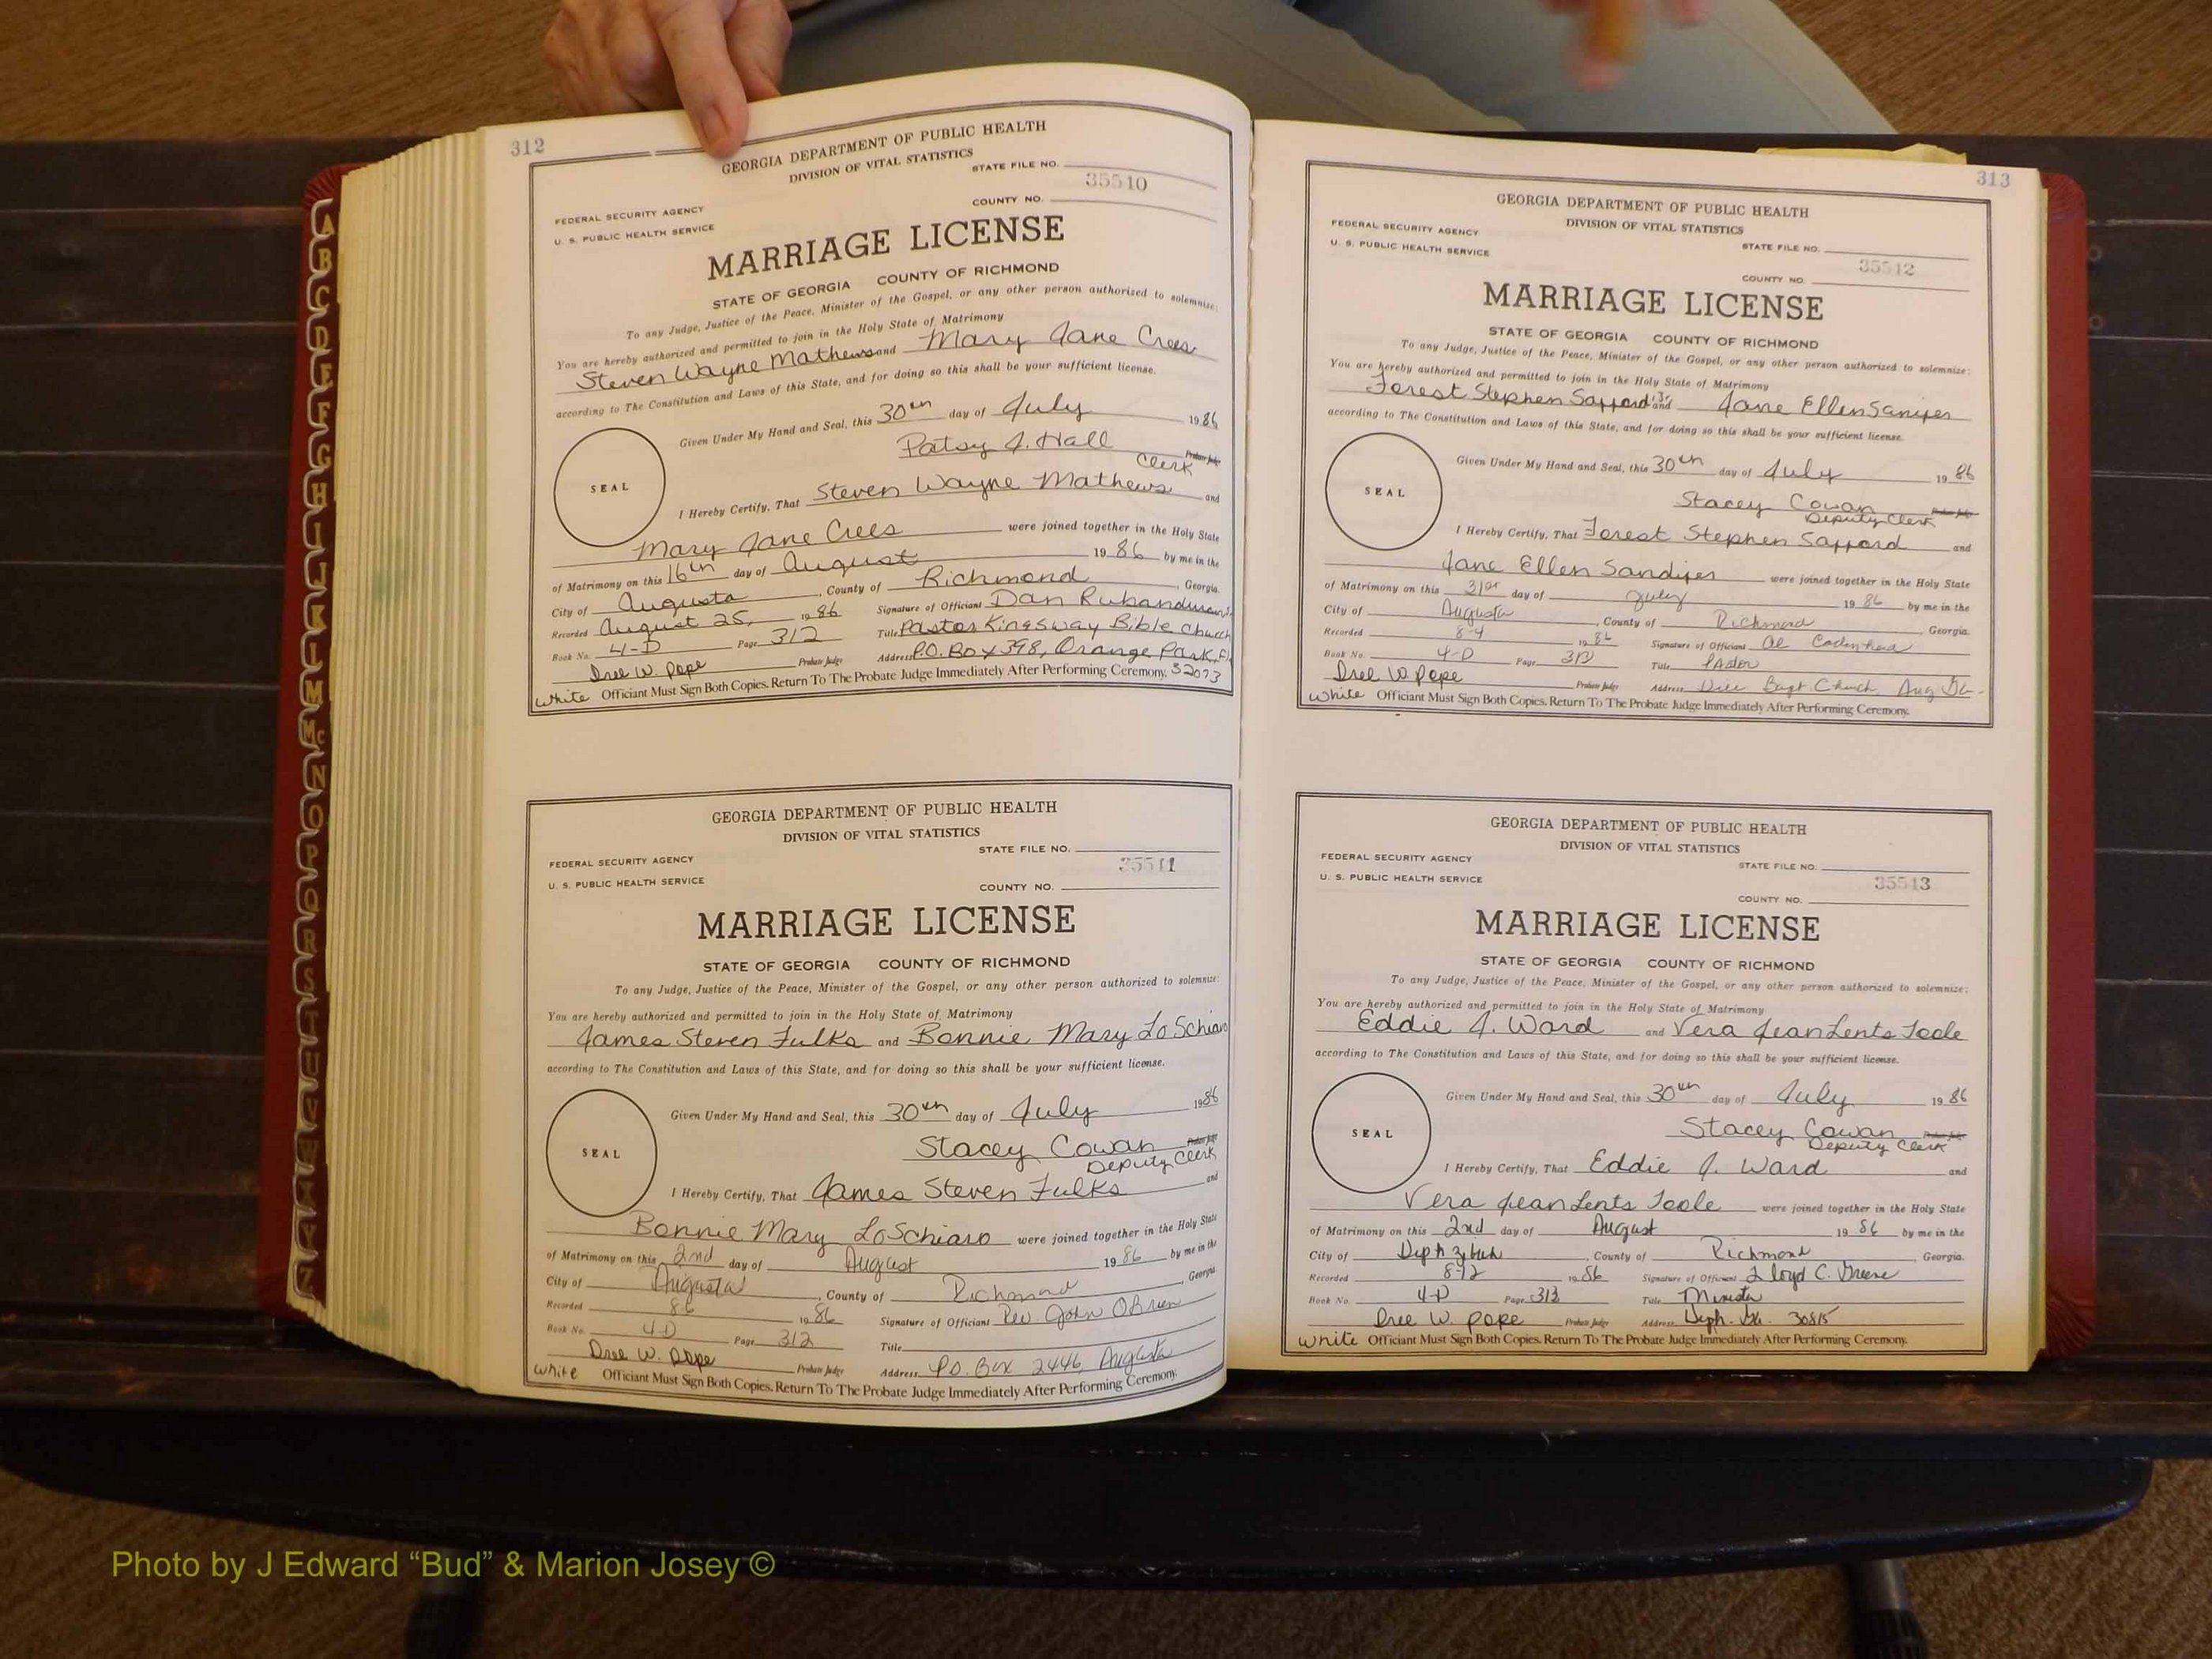 312
GEORGIA DEPARTMENT OF PUBLIC HEALTH
DIVISION OF VITAL STATISTICS
STATE FILE NO.
35510
FEDERAL SECURITY AGENCY
COUNTY NO.
U. S. PUBLIC HEALTH SERVICE
MARRIAGE LICENSE
STATE OF GEORGIA COUNTY OF RICHMOND
To any Judge, Justice of the Peace, Minister of the Gospel, or any other person authorized to solemnize:
You are hereby authorized and permitted to join in the Holy State of Matrimony
Steven Wayne Mathews and Mary Jane Crees
according to The Constitution and Laws of this State, and for doing so this shall be your sufficient license.
Given Under My Hand and Seal, this 30th day of July 1986
Patsy J. Hall Probate Judge
Clerk
SEAL
I Hereby Certify, That Steven Wayne Mathews and
Mary Jane Crees were joined together in the Holy State
of Matrimony on this 16th day of August 1986 by me in the
City of Augusta, County of Richmond, Georgia.
Recorded August 25, 1986 Signature of Officiant Dan
Book No. 4-D Page 312 Title Pastor Kingsway Bible Church
Dree W. Pope Probate Judge Address P.O. Box 398, Orange Park, Fl
32073
White Officiant Must Sign Both Copies. Return To The Probate Judge Immediately After Performing Ceremony.
GEORGIA DEPARTMENT OF PUBLIC HEALTH
DIVISION OF VITAL STATISTICS
STATE FILE NO.
35511
FEDERAL SECURITY AGENCY
U. S. PUBLIC HEALTH SERVICE
COUNTY NO.
MARRIAGE LICENSE
STATE OF GEORGIA COUNTY OF RICHMOND
To any Judge, Justice of the Peace, Minister of the Gospel, or any other person authorized to solemnize:
You are hereby authorized and permitted to join in the Holy State of Matrimony
James Steven Fulks and Bonnie Mary LoSchiavo
according to The Constitution and Laws of this State, and for doing so this shall be your sufficient license.
Given Under My Hand and Seal, this 30th day of July 1986
Stacey Cowan Probate Judge
Deputy Clerk
SEAL
I Hereby Certify, That James Steven Fulks and
Bonnie Mary LoSchiavo were joined together in the Holy State
of Matrimony on this 2nd day of August 1986 by me in the
City of Augusta, County of Richmond, Georgia.
Recorded 8-6 1986 Signature of Officiant Rev. John OBrien
Book No. 4-D Page 312 Title
Dree W. Pope Probate Judge Address P.O. Box 2446, Augusta
White Officiant Must Sign Both Copies. Return To The Probate Judge Immediately After Performing Ceremony.
313
GEORGIA DEPARTMENT OF PUBLIC HEALTH
DIVISION OF VITAL STATISTICS
FEDERAL SECURITY AGENCY
STATE FILE NO.
U. S. PUBLIC HEALTH SERVICE
35512
COUNTY NO.
MARRIAGE LICENSE
STATE OF GEORGIA COUNTY OF RICHMOND
To any Judge, Justice of the Peace, Minister of the Gospel, or any other person authorized to solemnize:
You are hereby authorized and permitted to join in the Holy State of Matrimony
Forest Stephen Safford and Jane Ellen Sandifer
according to The Constitution and Laws of this State, and for doing so this shall be your sufficient license.
Given Under My Hand and Seal, this 30th day of July 1986
Stacey Cowan Probate Judge
Deputy Clerk
SEAL
I Hereby Certify, That Forest Stephen Safford and
Jane Ellen Sandifer were joined together in the Holy State
of Matrimony on this 31st day of July 1986 by me in the
City of Augusta, County of Richmond, Georgia.
Recorded 8-4 1986 Signature of Officiant Al
Book No. 4-D Page 313 Title Pastor
Dree W. Pope Probate Judge Address Bapt Church, Aug Ga-
White Officiant Must Sign Both Copies. Return To The Probate Judge Immediately After Performing Ceremony.
GEORGIA DEPARTMENT OF PUBLIC HEALTH
DIVISION OF VITAL STATISTICS
FEDERAL SECURITY AGENCY
STATE FILE NO.
U. S. PUBLIC HEALTH SERVICE
35513
COUNTY NO.
MARRIAGE LICENSE
STATE OF GEORGIA COUNTY OF RICHMOND
To any Judge, Justice of the Peace, Minister of the Gospel, or any other person authorized to solemnize:
You are hereby authorized and permitted to join in the Holy State of Matrimony
Eddie J. Ward and Vera Jean Lents Toole
according to The Constitution and Laws of this State, and for doing so this shall be your sufficient license.
Given Under My Hand and Seal, this 30th day of July 1986
Stacey Cowan Probate Judge
Deputy Clerk
SEAL
I Hereby Certify, That Eddie J. Ward and
Vera Jean Lents Toole were joined together in the Holy State
of Matrimony on this 2nd day of August 1986 by me in the
City of Hephzibah, County of Richmond, Georgia.
Recorded 8-12 1986 Signature of Officiant Lloyd C. Greene
Book No. 4-D Page 313 Title Minister
Dree W. Pope Probate Judge Address Heph. Ga. 30815
White Officiant Must Sign Both Copies. Return To The Probate Judge Immediately After Performing Ceremony.
A
B
C
D
E
F
G
H
I
J
K
L
M
Mc
N
O
P
Q
R
S
T
U
V
W
X
Y
Z
Photo by J Edward “Bud” & Marion Josey ©